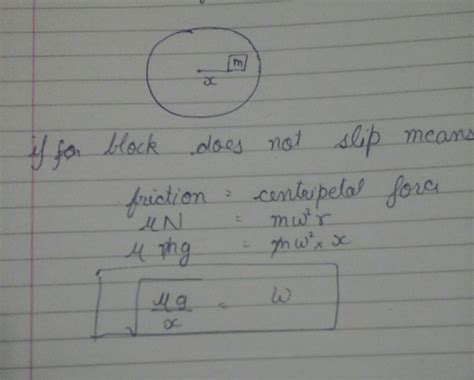 m
x
if for block does not slip means
friction = centripetal force
μN = mω²r
μ mg = mω² × x
√(μg/x) = ω